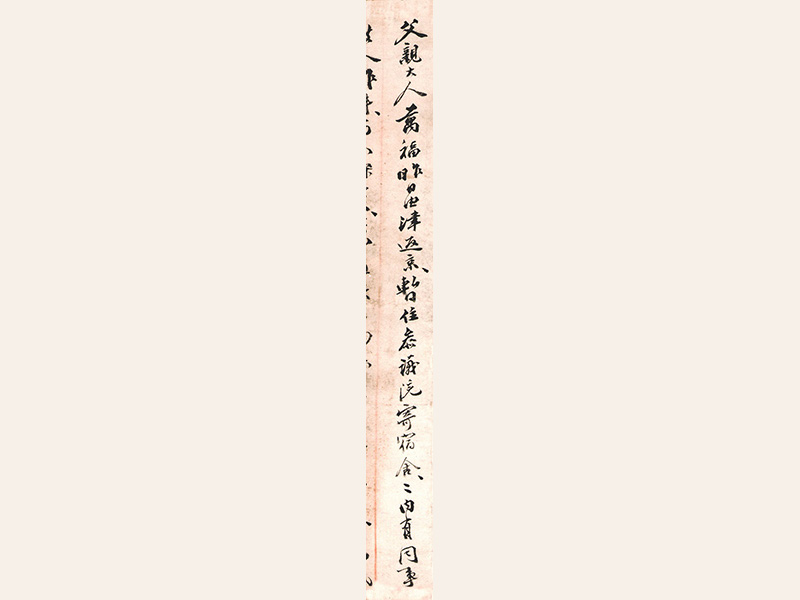 父親大人萬福昨日由津返京暫住參議院寄宿舍、〻內有同事